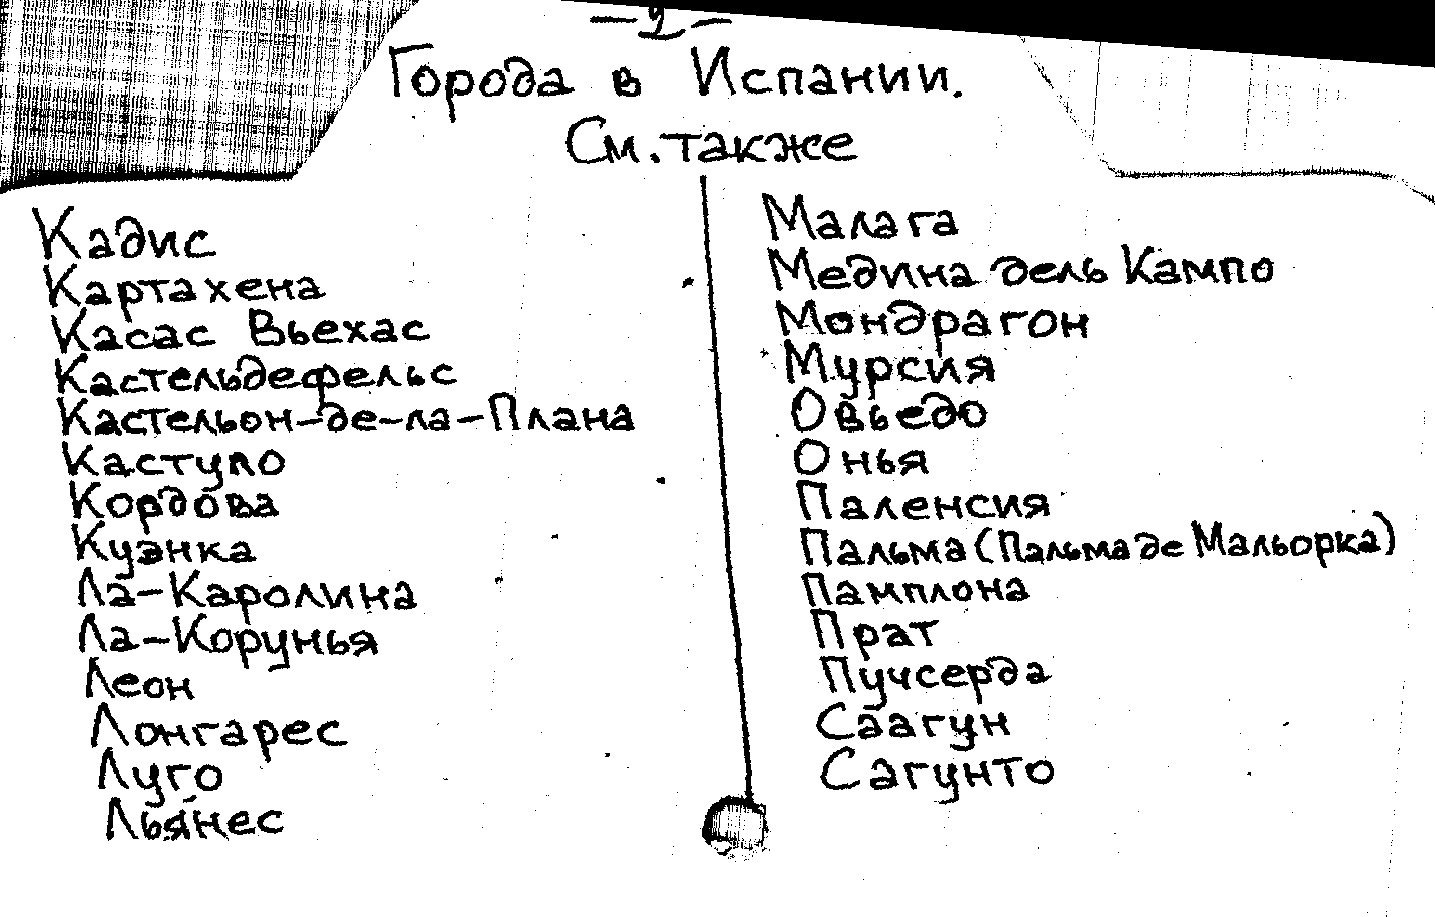 —2—
Города в Испании.
См. также
Кадис
Картахена
Касас Вьехас
Кастельдефельс
Кастельон-де-ла-Плана
Кастуло
Кордова
Куэнка
Ла-Каролина
Ла-Корунья
Леон
Лонгарес
Луго
Льянес
Малага
Медина дель Кампо
Мондрагон
Мурсия
Овьедо
Онья
Паленсия
Пальма (Пальма де Мальорка)
Памплона
Прат
Пучсерда
Саагун
Сагунто